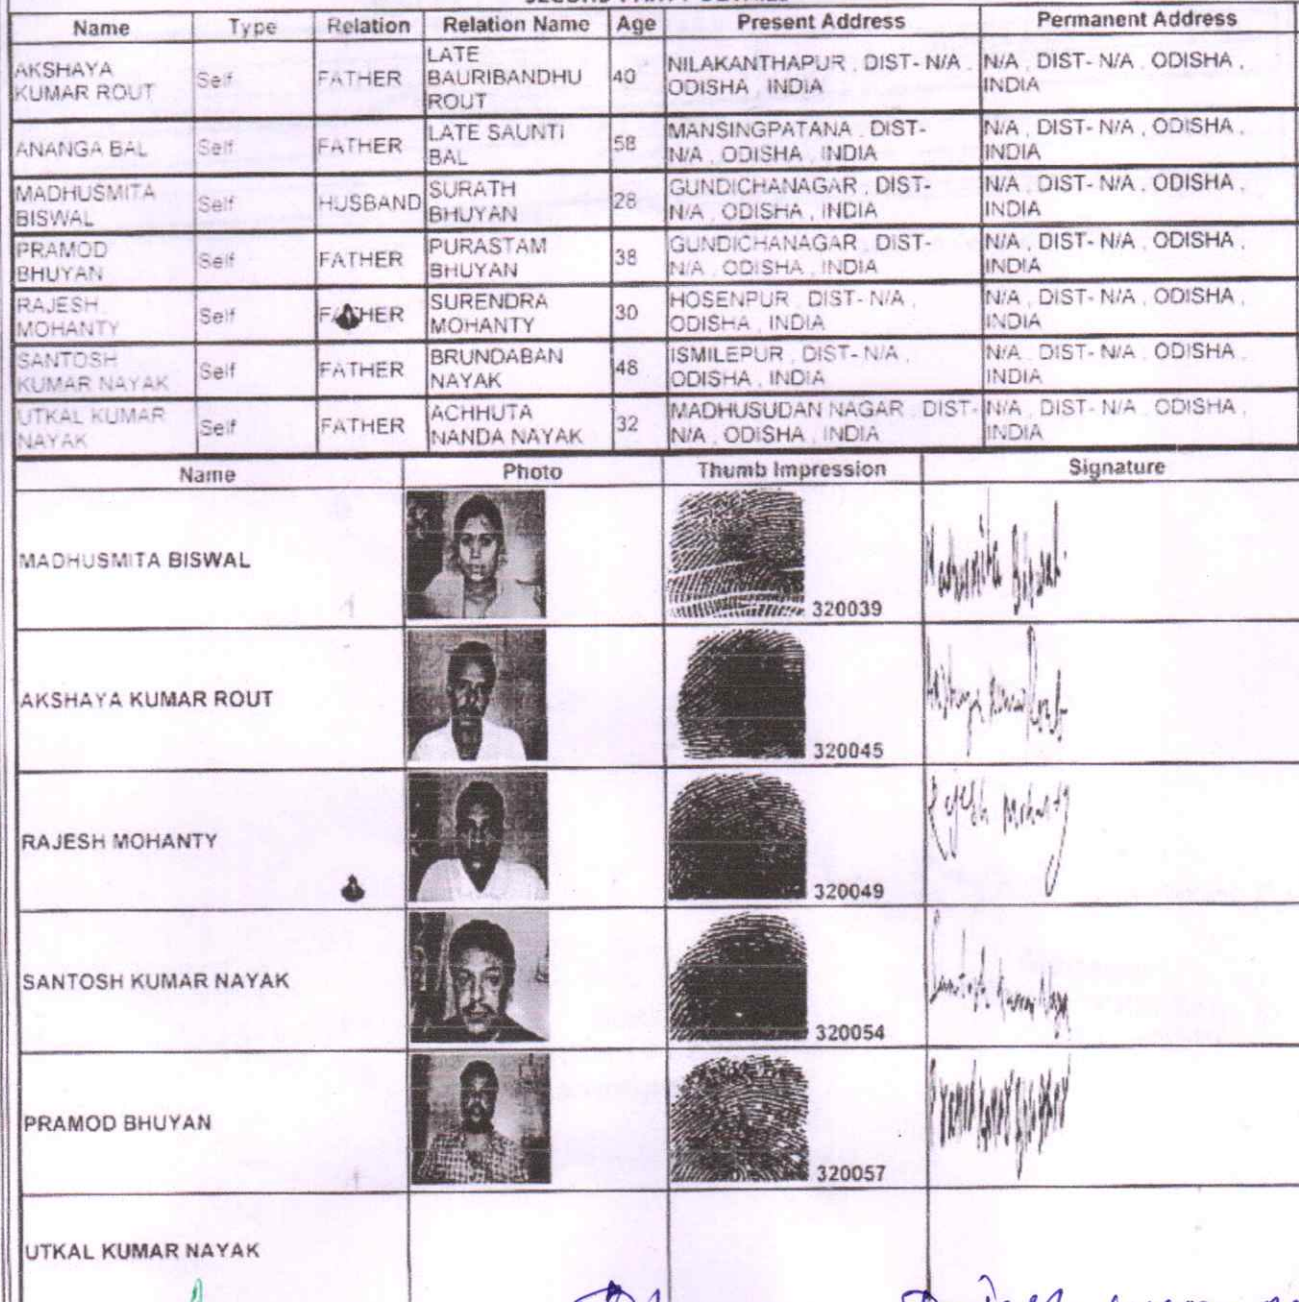 Name Type Relation Relation Name Age Present Address Permanent Address
AKSHAYA KUMAR ROUT Self FATHER LATE BAURIBANDHU ROUT 40 NILAKANTHAPUR , DIST- N/A , ODISHA , INDIA N/A , DIST- N/A , ODISHA , INDIA
ANANGA BAL Self FATHER LATE SAUNTI BAL 58 MANSINGPATANA , DIST- N/A , ODISHA , INDIA N/A , DIST- N/A , ODISHA , INDIA
MADHUSMITA BISWAL Self HUSBAND SURATH BHUYAN 28 GUNDICHANAGAR , DIST- N/A , ODISHA , INDIA N/A , DIST- N/A , ODISHA , INDIA
PRAMOD BHUYAN Self FATHER PURASTAM BHUYAN 38 GUNDICHANAGAR , DIST- N/A , ODISHA , INDIA N/A , DIST- N/A , ODISHA , INDIA
RAJESH MOHANTY Self FATHER SURENDRA MOHANTY 30 HOSENPUR , DIST- N/A , ODISHA , INDIA N/A , DIST- N/A , ODISHA , INDIA
SANTOSH KUMAR NAYAK Self FATHER BRUNDABAN NAYAK 48 ISMILEPUR , DIST- N/A , ODISHA , INDIA N/A , DIST- N/A , ODISHA , INDIA
UTKAL KUMAR NAYAK Self FATHER ACHHUTA NANDA NAYAK 32 MADHUSUDAN NAGAR , DIST- N/A , ODISHA , INDIA N/A , DIST- N/A , ODISHA , INDIA
Name Photo Thumb Impression Signature
MADHUSMITA BISWAL 320039 Madhusmita Biswal
AKSHAYA KUMAR ROUT 320045 Akshaya Kumar Rout
RAJESH MOHANTY 320049 Rajesh Mohanty
SANTOSH KUMAR NAYAK 320054 Santosh Kumar Nayak
PRAMOD BHUYAN 320057
UTKAL KUMAR NAYAK